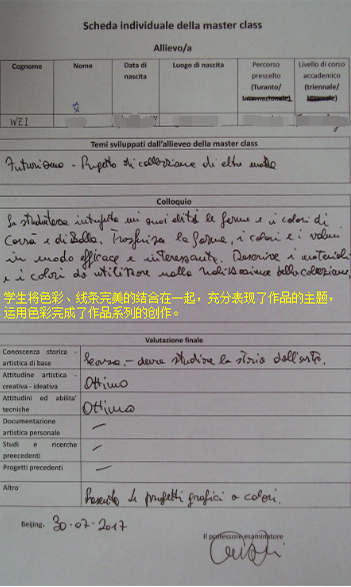 Scheda individuale della master class
Allievo/a
Cognome Nome Data di nascita Luogo di nascita Percorso prescelto (Turanto/ Internazionale) Livello di corso accademico (triennale/
WEI
Temi sviluppati dall'allieveo della master class
Futurismo - Progetto di collezione di alta moda
Colloquio
La studentessa interpreta nei suoi abiti le forme e i colori di
Carrà e di Balla. Trasferisce la forma, i colori e i volumi
in modo efficace e interessante. Descrive i materiali
e i colori da utilizzare nella realizzazione della collezione.
学生将色彩、线条完美的结合在一起，充分表现了作品的主题，
运用色彩完成了作品系列的创作。
Valutazione finale
Conoscenza storica - artistica di base Scarsa - deve studiare la storia dell'arte.
Attitudine artistica - creativa - ideativa Ottimo
Attitudini ed abilita' tecniche Ottimo
Documentazione artistica personale —
Studi e ricerche preecedenti —
Progetti precedenti —
Altro Presenta progetti grafici a colori.
Beijing, 30-07-2017
Il professore esaminatore